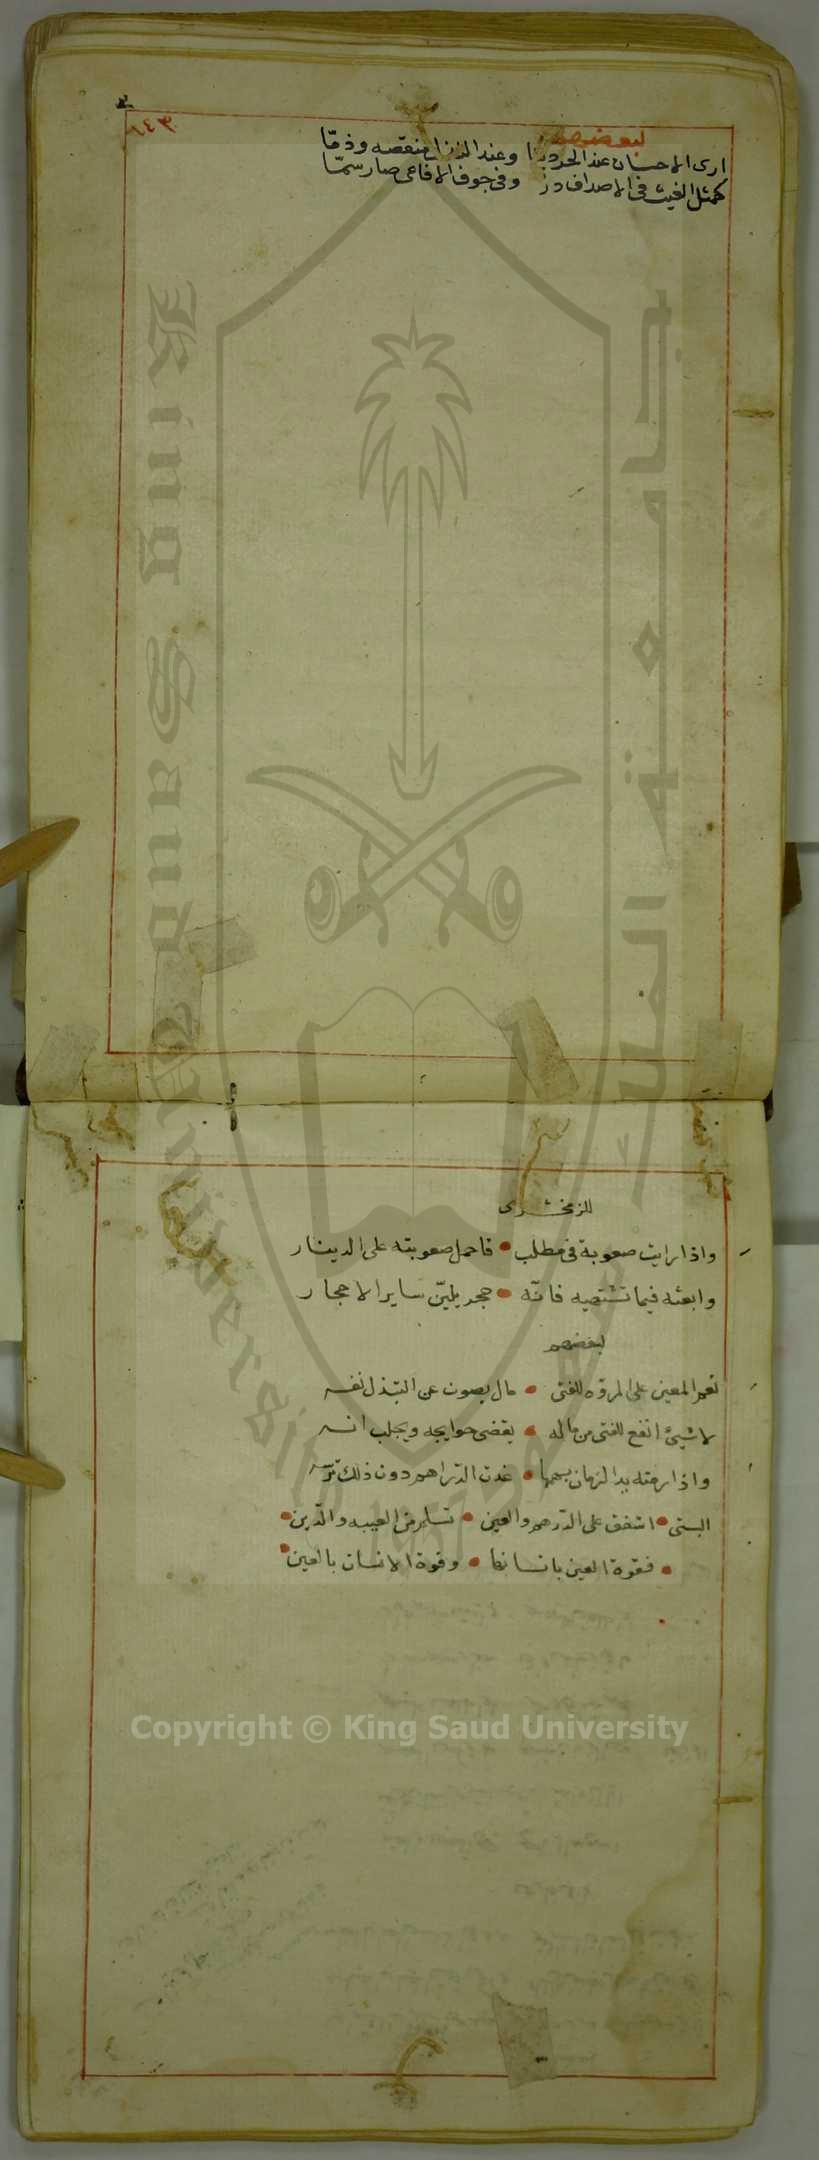 لبعضهم
ارى الاحسان عند الحر دينا وعند النذل منقصه وذمّا
كمثل الغيث فى الاصداف در وفى جوف الافاعى صار سمّا
للزمخشرى
واذا رايت صعوبة فى مطلب • فاحمل صعوبته على الدينار
وابعثه فيما تشتهيه فانّه • حجر يليّن ساير الاحجار
لبعضهم
نعم المعين على المروّه للفتى • مال يصون عن التبذل نفسه
لا شيئ انفع للفتى من ماله • يقضى حوايجه ويجلب انسه
واذا رمته يد الزمان بسهمها • غدت الدّراهم دون ذلك ترسه
البستى • اشفق على الدّرهم والعين • تسلم من العيبه والدّين •
• فقوة العين بانسانها • وقوة الانسان بالعين •
King Saud University
جامعة الملك سعود
1957
Copyright © King Saud University